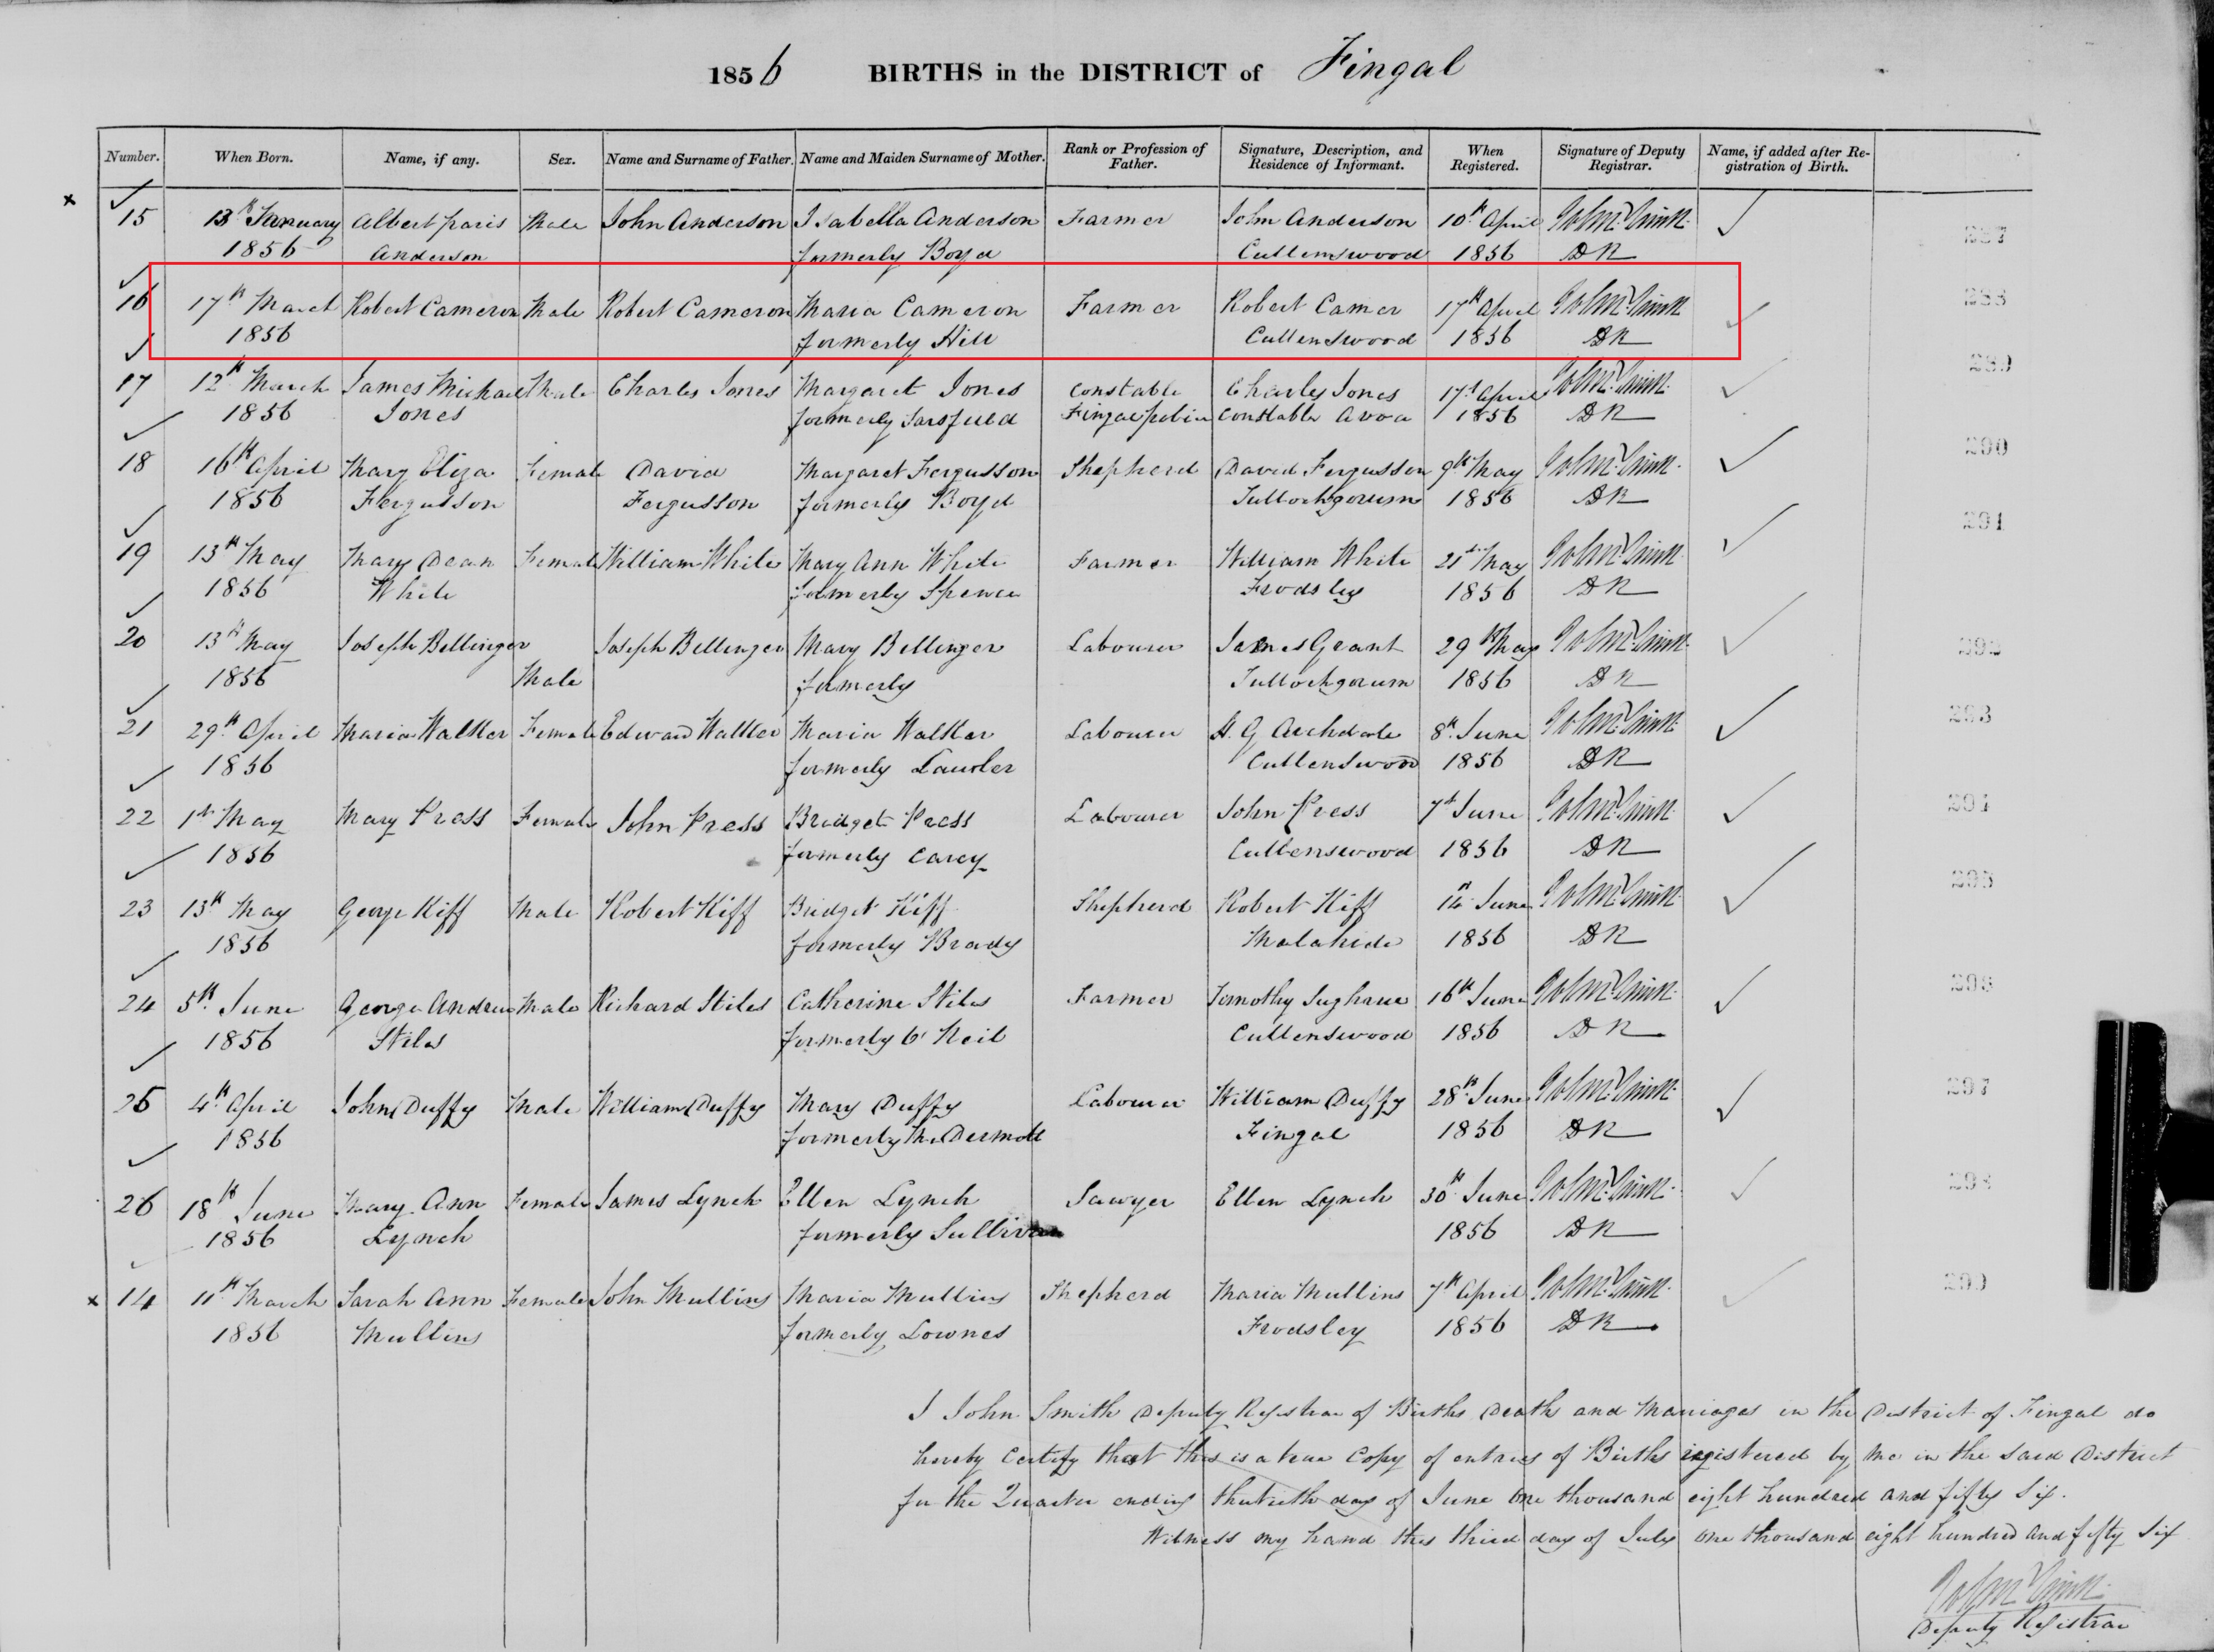 1856 BIRTHS in the DISTRICT of Fingal
Number. When Born. Name, if any. Sex. Name and Surname of Father. Name and Maiden Surname of Mother. Rank or Profession of Father. Signature, Description, and Residence of Informant. When Registered. Signature of Deputy Registrar. Name, if added after Registration of Birth.
x 15 13th January Albert paris Male John Anderson Isabella Anderson Farmer John Anderson 10th April John Smith 287
1856 Anderson formerly Boyd Cullenswood 1856 DR
16 17th March Robert Cameron Male Robert Cameron Maria Cameron Farmer Robert Camer 17th April John Smith 288
1856 formerly Hill Cullenswood 1856 DR
17 12th March James Michael Male Charles Jones Margaret Jones Constable Charles Jones 17th April John Smith 289
1856 Jones formerly Sarsfield Fingal police Constable Avoca 1856 DR
18 16th April Mary Eliza Female David Margaret Fergusson Shepherd David Fergusson 9th May John Smith 290
1856 Fergusson Fergusson formerly Boyd Tullochgorum 1856 DR
19 13th May Mary Dean Female William White Mary Ann White Farmer William White 21st May John Smith 291
1856 White formerly Spence Frodsley 1856 DR
20 13th May Joseph Bellinger Joseph Bellinger Mary Bellinger Labourer James Grant 29th May John Smith 292
1856 Male formerly Tullochgorum 1856 DR
21 29th April Maria Walker Female Edward Walker Maria Walker Labourer A. G Archdale 8th June John Smith 293
1856 formerly Lawler Cullenswood 1856 DR
22 1st May Mary Press Female John Press Bridget Press Labourer John Press 7th June John Smith 294
1856 formerly Carey Cullenswood 1856 DR
23 13th May George Kiff Male Robert Kiff Bridget Kiff Shepherd Robert Kiff 14th June John Smith 295
1856 formerly Brady Malahide 1856 DR
24 5th June George Andrew Male Richard Stiles Catherine Stiles Farmer Timothy Sughrue 16th June John Smith 296
1856 Stiles formerly O'Neil Cullenswood 1856 DR
25 4th April John Duffy Male William Duffy Mary Duffy Labourer William Duffy 28th June John Smith 297
1856 formerly McDermott Fingal 1856 DR
26 18th June Mary Ann Female James Lynch Ellen Lynch Sawyer Ellen Lynch 30th June John Smith 298
1856 Lynch formerly Sullivan 1856 DR
x 14 11th March Sarah Ann Female John Mullins Maria Mullins Shepherd Maria Mullins 7th April John Smith 299
1856 Mullins formerly Lownes Frodsley 1856 DR
I John Smith Deputy Registrar of Births Deaths and Marriages in the District of Fingal do
hereby Certify that this is a true Copy of entries of Births registered by me in the said District
for the Quarter ending thirtieth day of June One thousand eight hundred and fifty Six.
Witness my hand this third day of July One thousand eight hundred and fifty Six
John Smith
Deputy Registrar